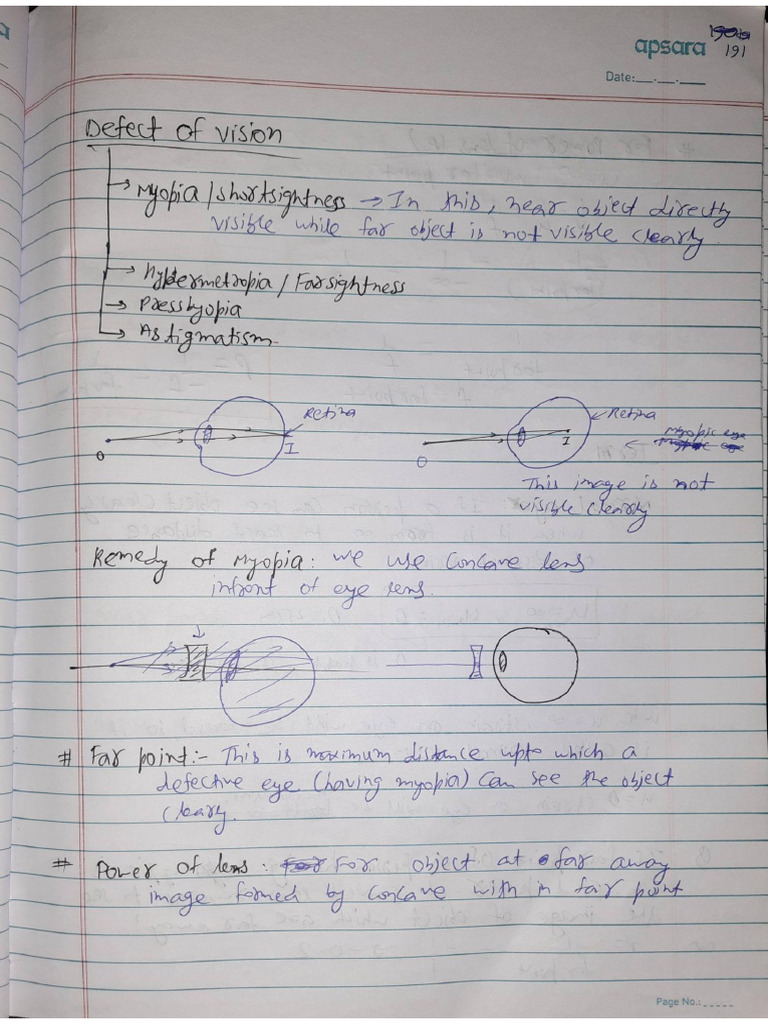 apsara
191
Date:__.__.__
Defect of vision
→ Myopia / shortsightness → In this, near object directly
visible while far object is not visible clearly.
→ Hypermetropia / Farsightness
→ Pressbyopia
→ Astigmatism.
Retina
O
I
Retina
O
I
Myopic eye
This image is not
visible clearly
Remedy of Myopia: we use Concave lens
infront of eye lens.
# Far point:- This is maximum distance upto which a
defective eye (having myopia) can see the object
clearly.
# Power of lens: For object at far away
image formed by concave with in far point
Page No.: